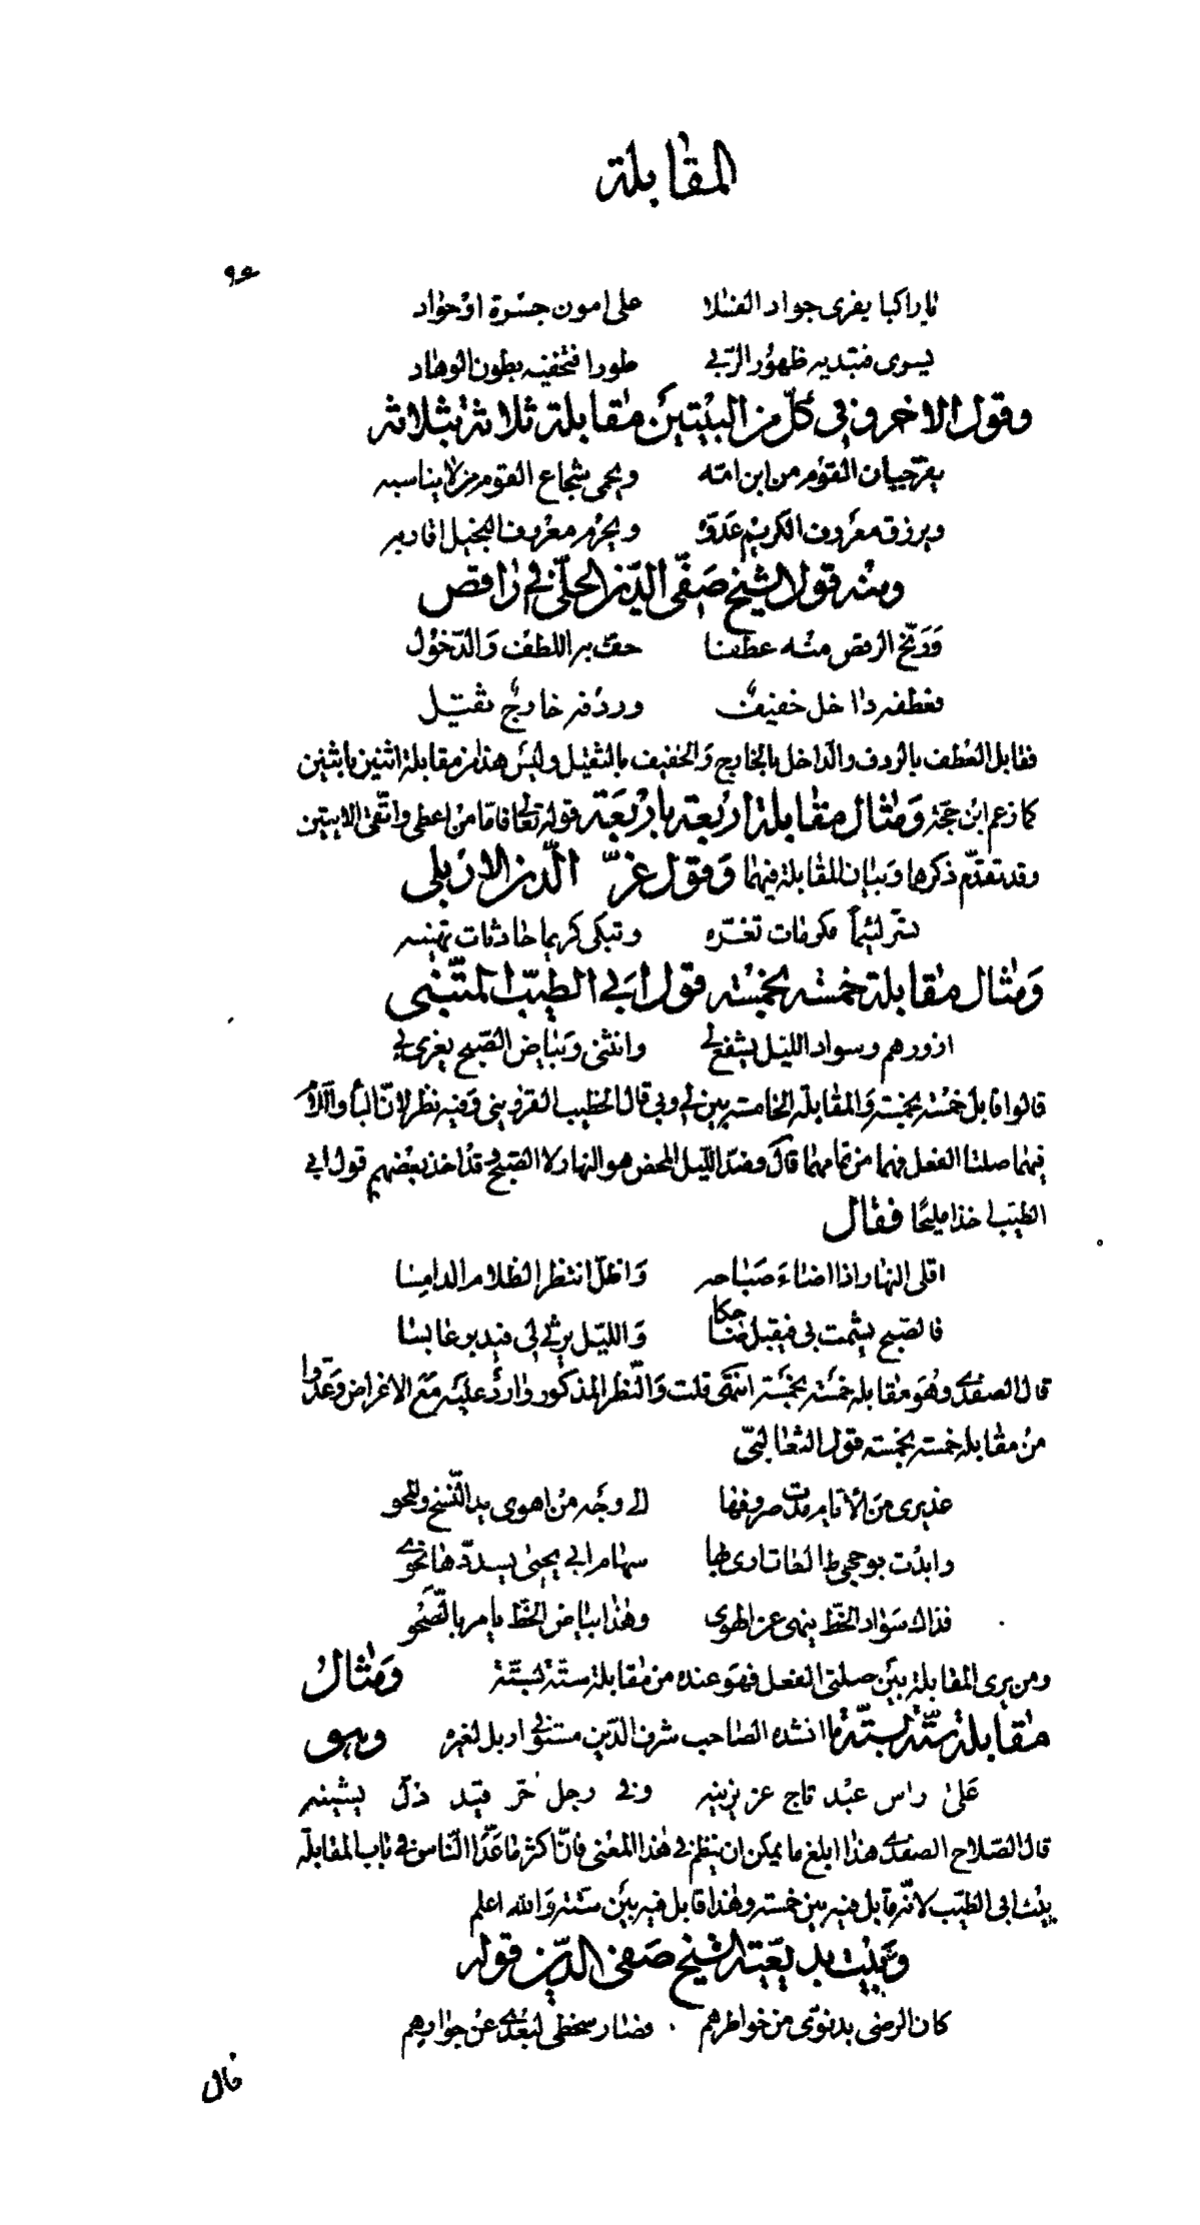 المقابلة
٩٤
يا راكبا يفرى جواد الفلا على امون جسرة او جواد
يسرى فتبديه ظهور الربى طورا فتخفيه بطون الوهاد
وقول الاخر وفي كل من البيتين مقابلة ثلاثة بثلاثة
يفر جبان القوم من ابن امه ويحمى شجاع القوم من لا يناسبه
ويرزق معروف الكريم عدوه ويحرم معروف البخيل اقاربه
ومنه قول الشيخ صفى الدين الحلى في راقص
ورنح الرقص منه عطفا حف به اللطف والدخول
فعطفه داخل خفيف وردفه خارج ثقيل
فقابل العطف بالردف والداخل بالخارج والخفيف بالثقيل وليس هذا من مقابلة اثنين باثنين
كما زعم ابن حجة ومثال مقابلة اربعة باربعة قوله تعالى فاما من اعطى واتقى الايتين
وقد تقدم ذكرهما وبيان المقابلة فيهما وقول غرس الدين الاربلى
تسر لئيما مكرمات تعزه وتبكى كريما حادثات تهينه
ومثال مقابلة خمسة بخمسة قول ابى الطيب المتنبى
ازورهم وسواد الليل يشفع لي وانثنى وبياض الصبح يغرى بي
قالوا قابل خمسة بخمسة والمقابلة الخامسة بين لي وبي قال الخطيب القزوينى وفيه نظر لان الباء واللام
فيهما صلتا الفعل فهما من تمامهما قال وضد الليل المحض هو النهار لا الصبح وقد اخذ بعضهم قول ابى
الطيب اخذا مليحا فقال
اقلى النهار اذا اضاء صباحه واظل انتظر الظلام الدامسا
فالصبح يشمت بى فيقبل ضاحكا والليل يرثى لى فيدبر عابسا
قال الصفدى وهو مقابلة خمسة بخمسة انتهى قلت والنظر المذكور وارد عليه مع الاغراض وعدوا
من مقابلة خمسة بخمسة قول الثعالبى
عذيرى من الايام مدت صروفها الى وجه من اهوى يد النسخ والمحو
وابدت بوجهى طالعات ارى بها سهام ابى يحيى يسددها نحوى
فذاك سواد الخط ينهى عن الهوى وهذا بياض الخط يامر بالصحو
ومن يرى المقابلة بين صلتى الفعل فهو عنده من مقابلة ستة بستة ومثال
مقابلة ستة بستة ما انشده الصاحب شرف الدين مستوفى اربل لغيره وهو
على راس عبد تاج عز يزينه وفى رجل حر قيد ذل يشينه
قال الصلاح الصفدى هذا ابلغ ما يمكن ان ينظم فى هذا المعنى فان اكثر ما عد الناس فى باب المقابلة
بيت ابى الطيب لانه قابل فيه بين خمسة وهذا قابل فيه بين ستة والله اعلم
وبيت بديعية الشيخ صفى الدين قوله
كان الرضى بدنوى من خواطرهم فصار سخطى لبعدى عن جوارهم
قال